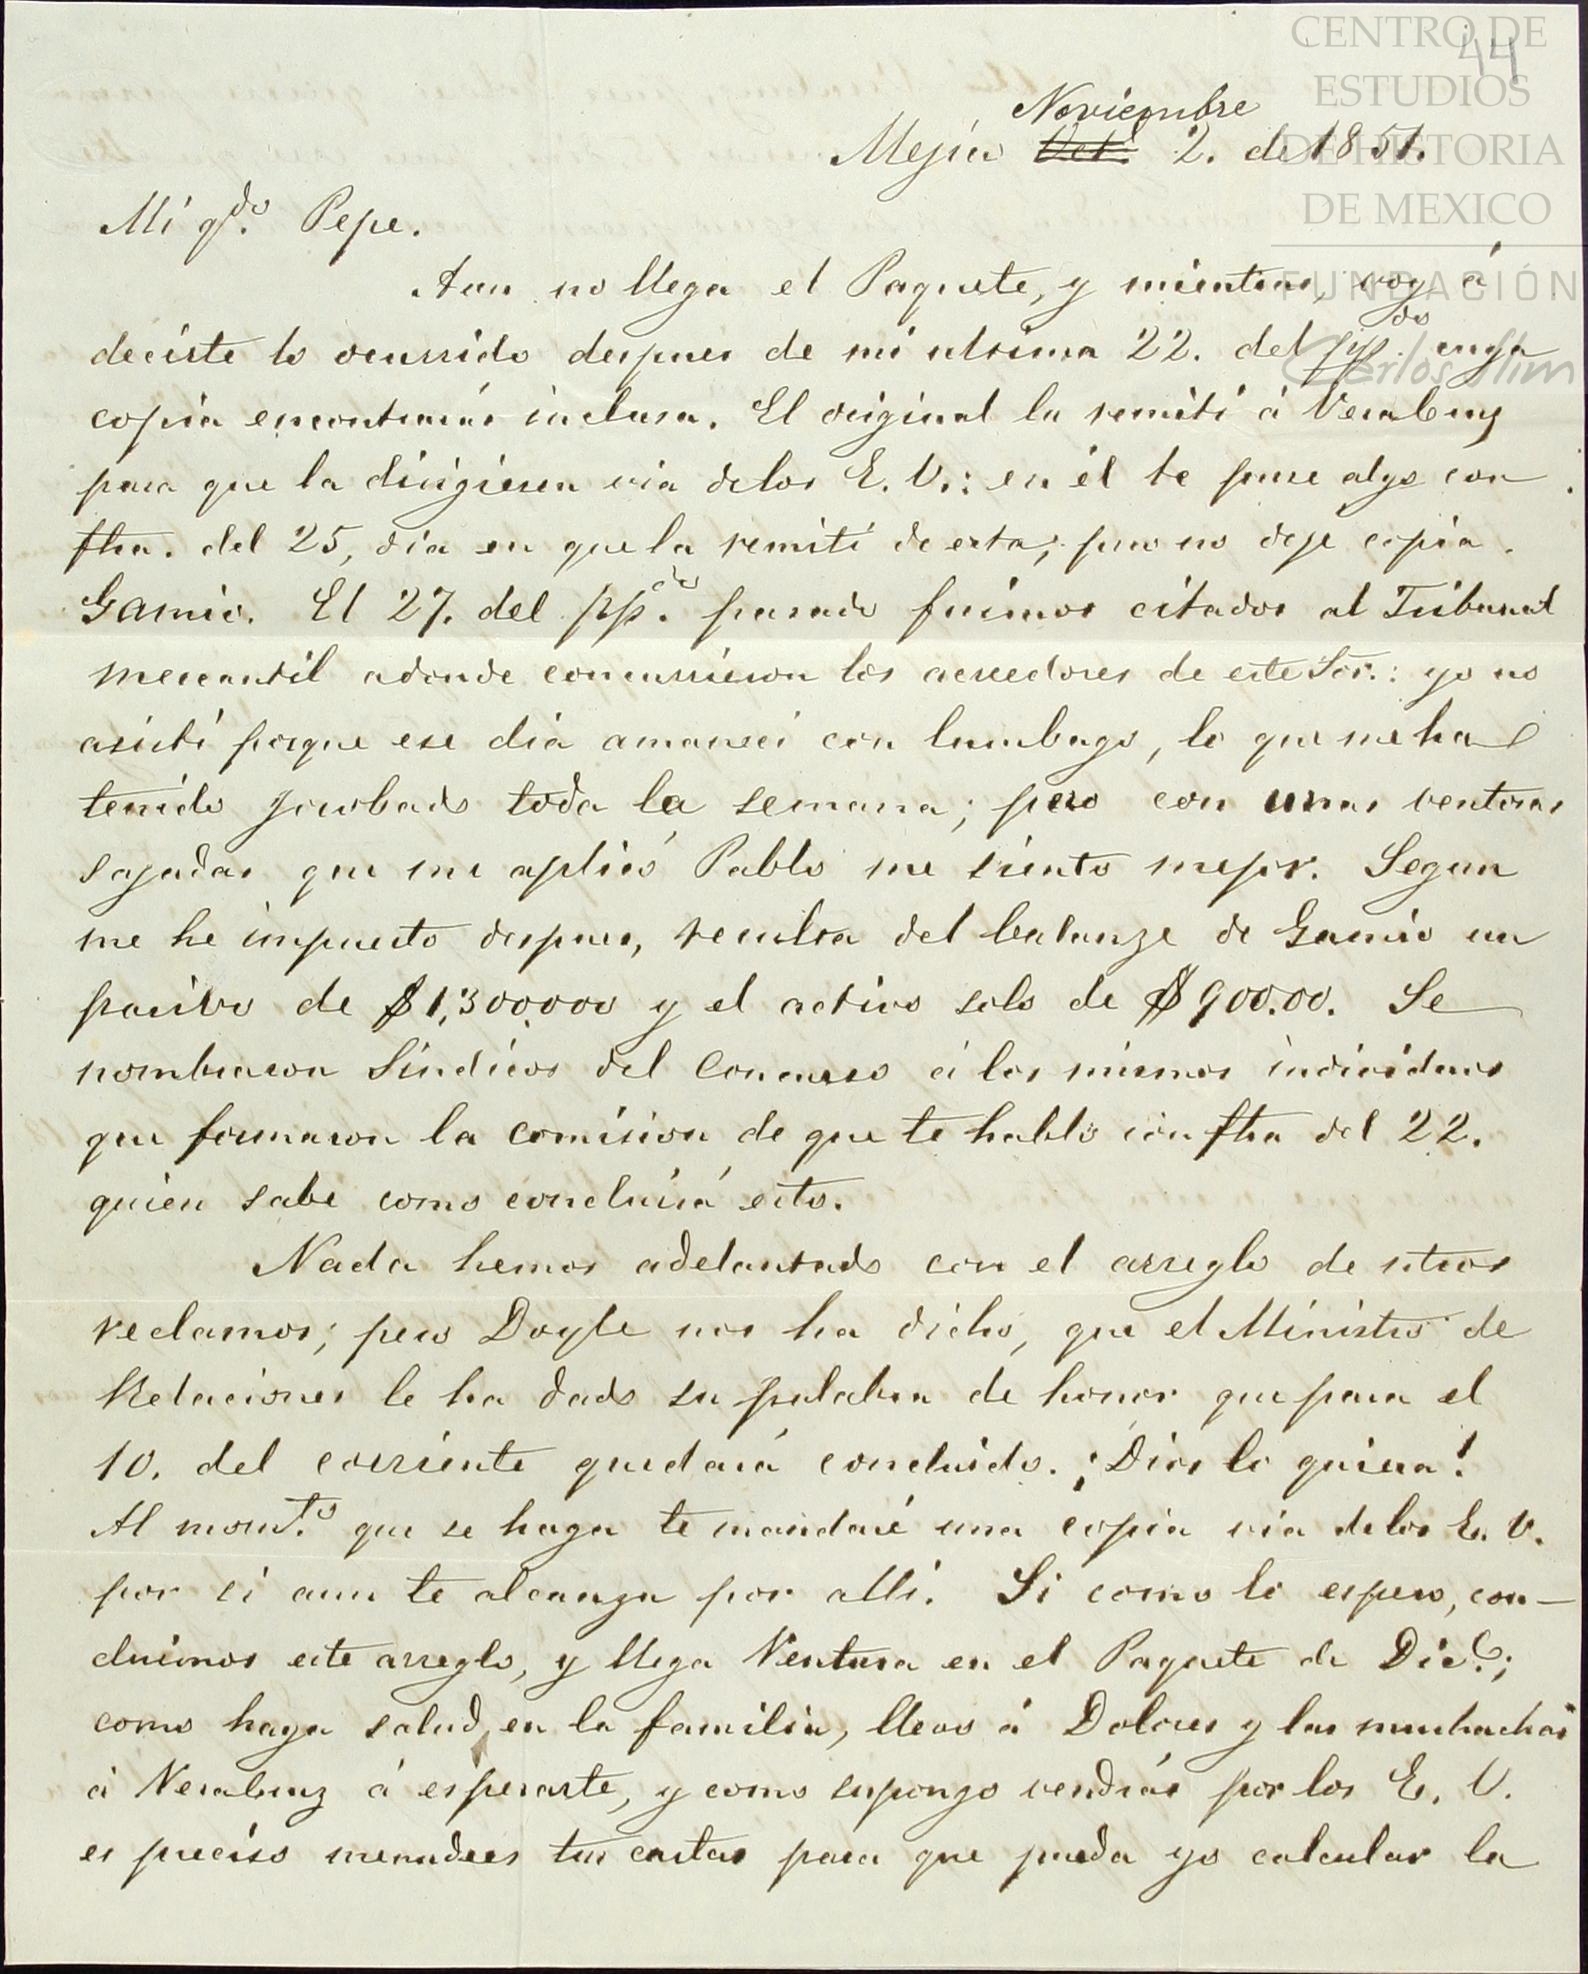 CENTRO DE
ESTUDIOS
DE HISTORIA
DE MEXICO
FUNDACIÓN
Carlos Slim
44
Noviembre
Mejico Oct.e 2. de 1851.
Mi qdo. Pepe.
Aun no llega el Paquete, y mientras, voy á
decirte lo ocurrido despues de mi ultima 22. del ppdo. cuya
copia encontrarás inclusa. El original la remití á Veracruz
para que la dirigiesen via delos E. U.: en él te puse algo con
fha. del 25, dia en que la remití de esta; pero no dejé copia.
Gamio. El 27. del pp.do pasado fuimos citados al Tribunal
mercantil adonde concurrieron los acreedores de este Sor.: yo no
asistí porque ese dia amanecí con lumbago, lo que me ha
tenido jorobado toda la semana; pero con unas ventosas
sajadas que me aplicó Pablo me siento mejor. Segun
me he impuesto despues, resulta del balanze de Gamio un
pasivo de $1,300,000 y el activo solo de $900.00. Se
nombraron Sindicos del Concurso á los mismos individuos
que formaron la comision de que te hablo con fha del 22.
quien sabe como concluirá esto.
Nada hemos adelantado con el arreglo de ntros
reclamos; pero Doyle nos ha dicho, que el Ministro de
Relaciones le ha dado su palabra de honor que para el
10. del corriente quedará concluido. ¡Dios lo quiera!
Al momto. que se haga te mandaré una copia via delos E. U.
por si aun te alcanza por allí. Si como lo espero, con-
cluimos este arreglo, y llega Ventura en el Paquete de Dice.;
como haya salud en la familia, llevo á Dolores y las muchachas
á Veracruz á esperarte, y como supongo vendrás por los E. U.
es preciso menudees tus cartas para que pueda yo calcular la